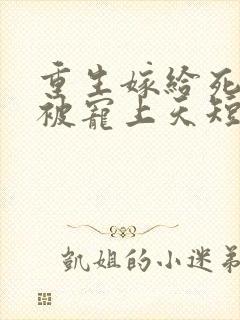 重生嫁给死
被宠上天短
凯姐的小迷弟